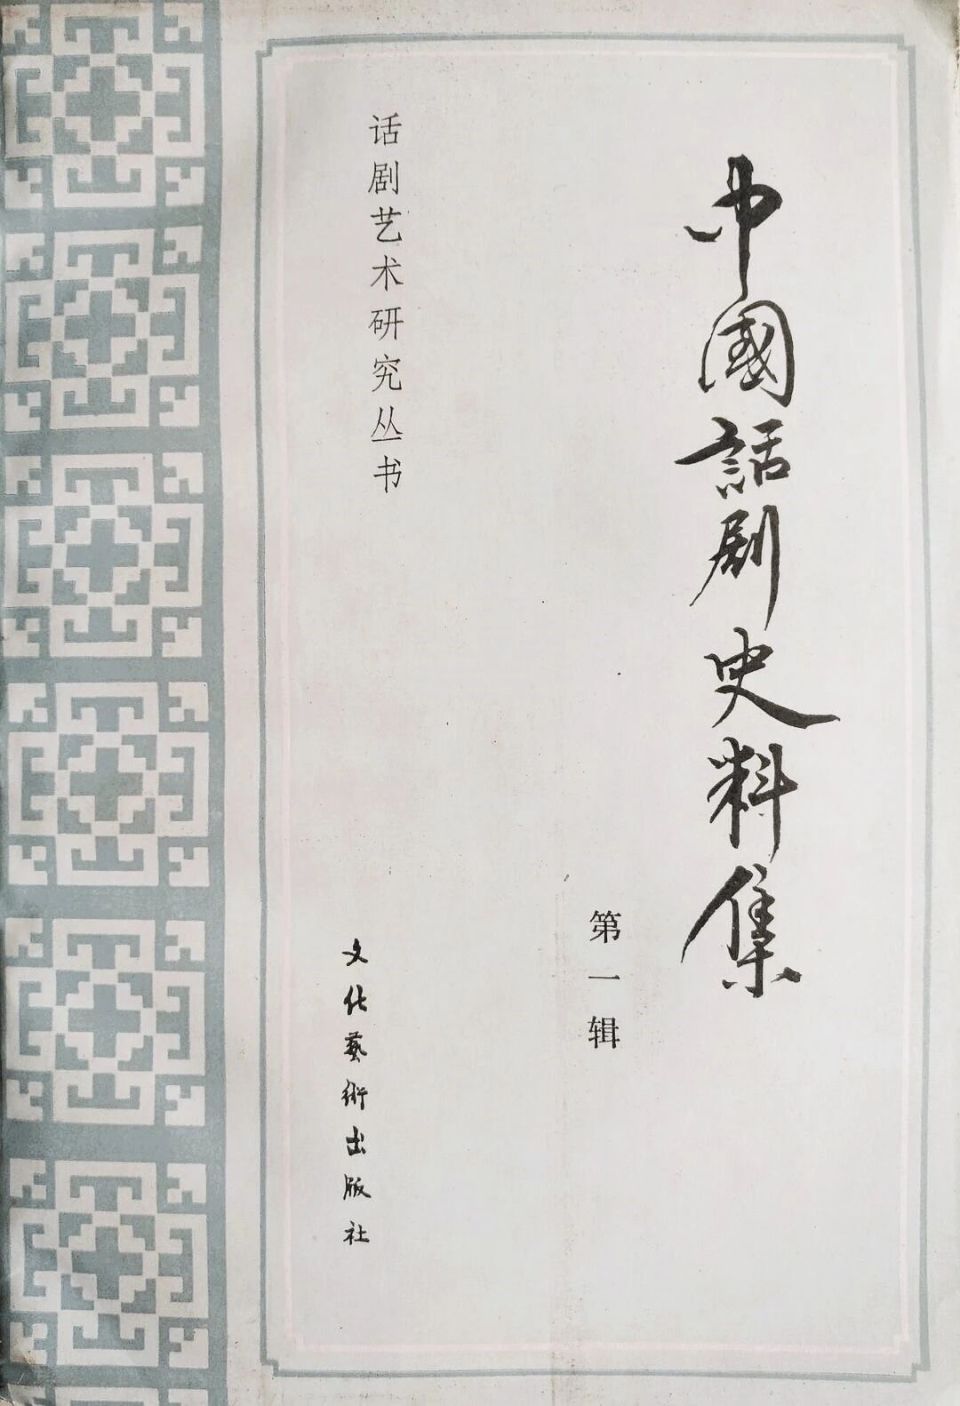 中國話剧史料集
第一辑
话剧艺术研究丛书
文化藝術出版社